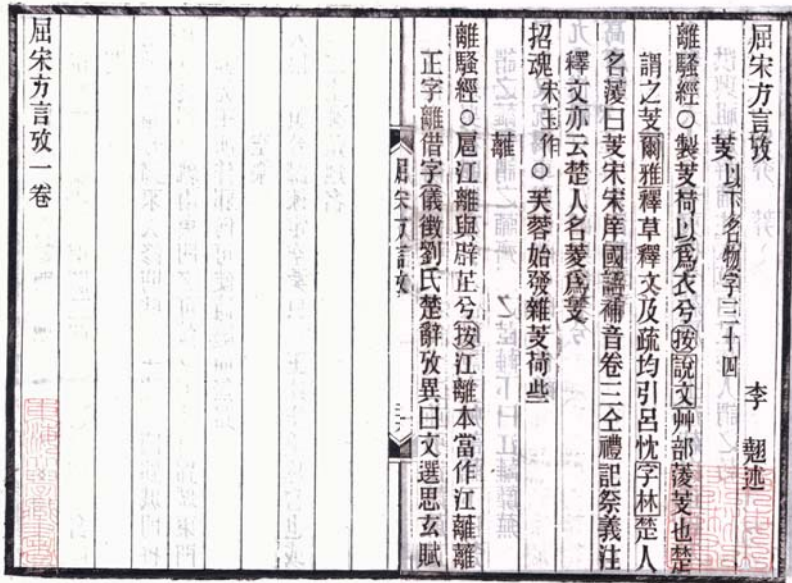 屈宋方言攷
李翹述
芰以下名物字三十四
離騷經○製芰荷以爲衣兮按說文艸部蔆芰也楚
謂之芰爾雅釋草釋文及疏均引呂忱字林楚人
名蔆曰芰宋宋庠國語補音卷三仝禮記祭義注
釋文亦云楚人名菱爲芰
招魂宋玉作○芙蓉始發雜芰荷些
蘺
離騷經○扈江離與辟芷兮按江離本當作江蘺蘺
正字離借字儀徵劉氏楚辭攷異曰文選思玄賦
屈宋方言攷
屈宋方言攷一卷